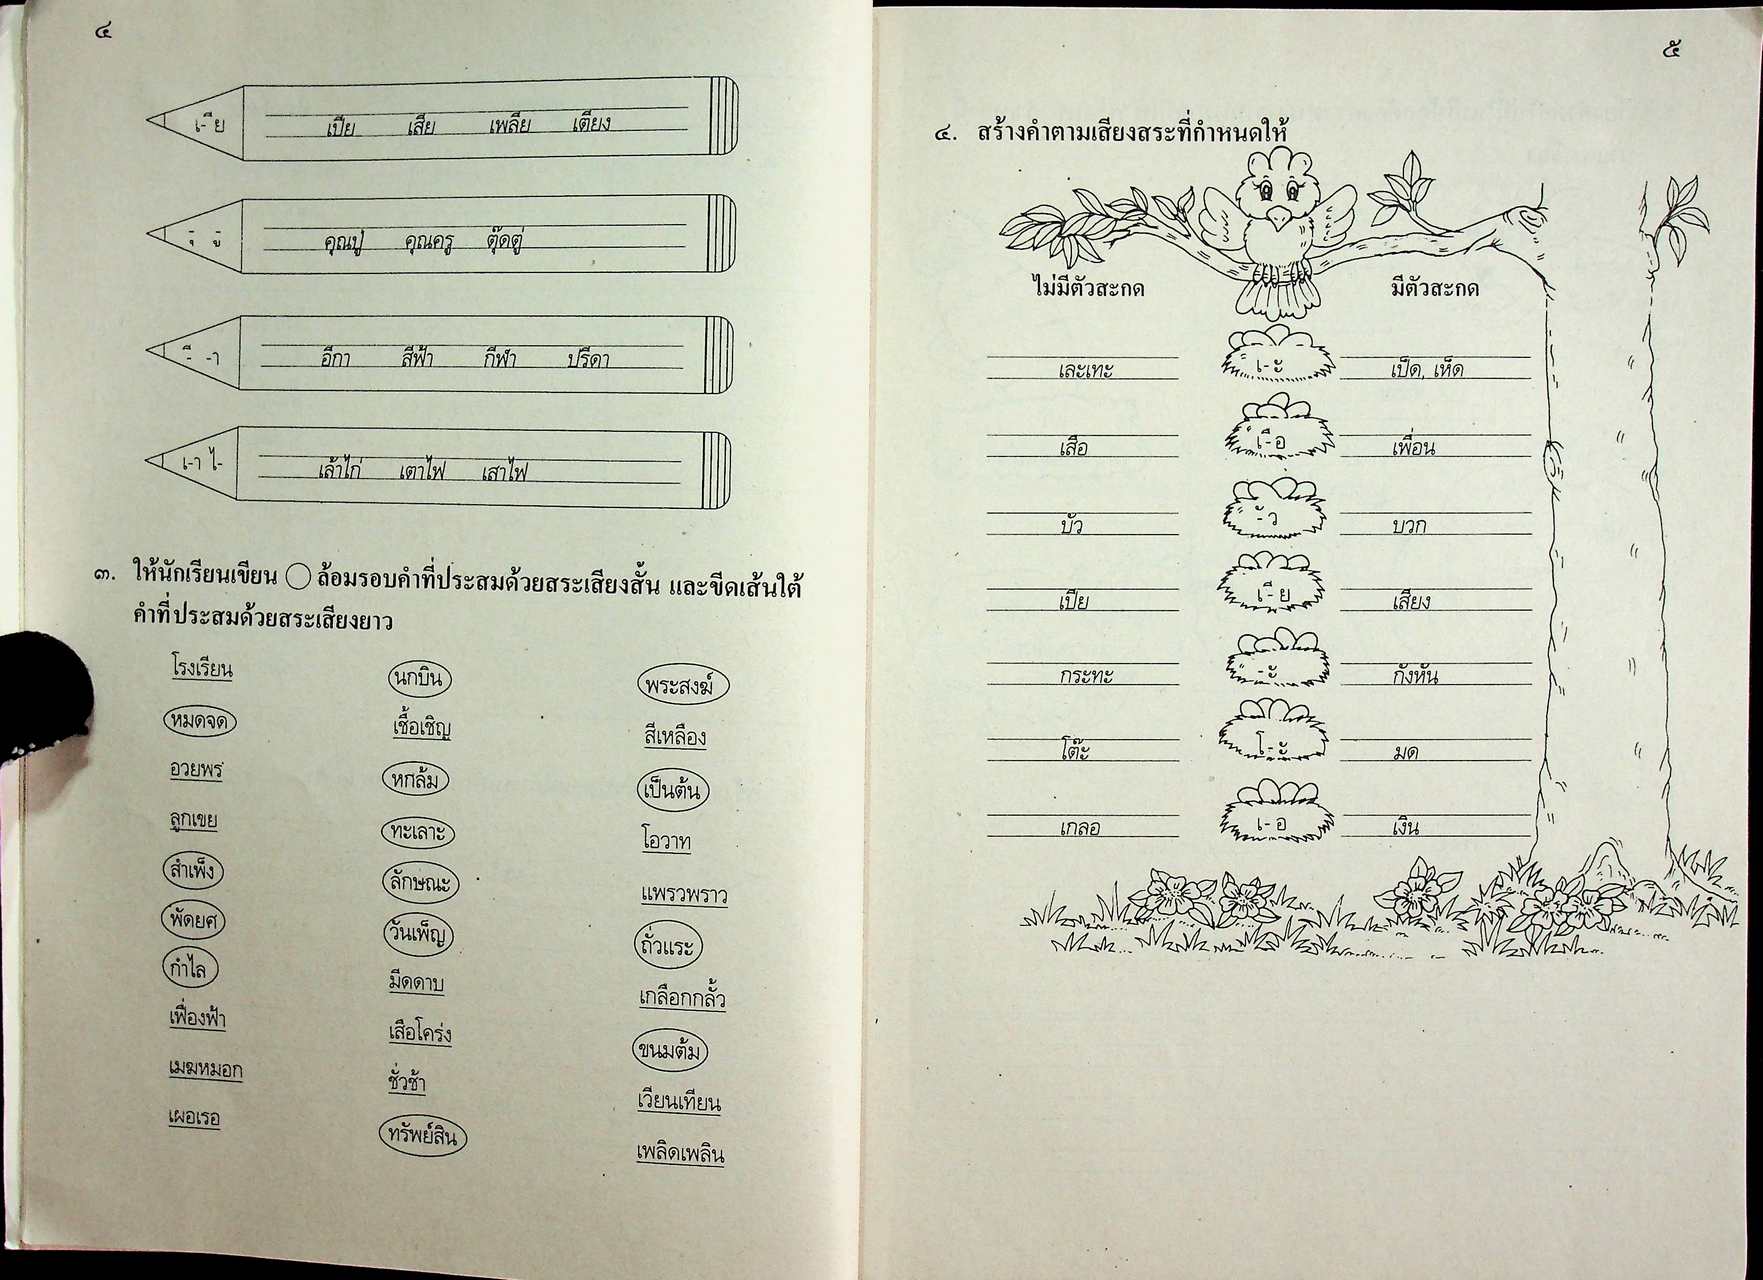 ๔
เ-ีย เปีย เสีย เพลีย เตียง
-ุ -ู คุณปู่ คุณครู ตุ๊ดตู่
-ี -า อีกา สีฟ้า กีฬา ปรีดา
เ-า ไ- เล้าไก่ เตาไฟ เสาไฟ
๓. ให้นักเรียนเขียน ◯ ล้อมรอบคำที่ประสมด้วยสระเสียงสั้น และขีดเส้นใต้
คำที่ประสมด้วยสระเสียงยาว
โรงเรียน นกบิน พระสงฆ์
หมดจด เชื้อเชิญ สีเหลือง
อวยพร หกล้ม เป็นต้น
ลูกเขย ทะเลาะ โอวาท
สำเพ็ง ลักษณะ แพรวพราว
พัดยศ วันเพ็ญ ถั่วแระ
กำไล มีดดาบ เกลือกกลั้ว
เฟื่องฟ้า เสือโคร่ง ขนมต้ม
เมฆหมอก ชั่วช้า เวียนเทียน
เผอเรอ ทรัพย์สิน เพลิดเพลิน
๕
๔. สร้างคำตามเสียงสระที่กำหนดให้
ไม่มีตัวสะกด มีตัวสะกด
เละเทะ เ-ะ เป็ด, เห็ด
เสือ เ-ือ เพื่อน
บัว -ัว บวก
เปีย เ-ีย เสียง
กระทะ -ะ กังหัน
โต๊ะ โ-ะ มด
เกลอ เ-อ เงิน